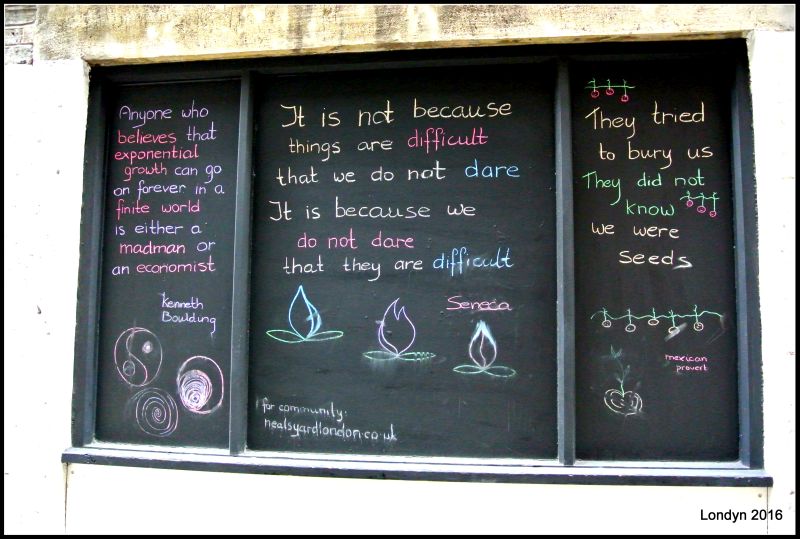 Anyone who
believes that
exponential
growth can go
on forever in a
finite world
is either a
madman or
an economist
Kenneth
Boulding
It is not because
things are difficult
that we do not dare
It is because we
do not dare
that they are difficult
Seneca
for community:
nealsyardlondon.co.uk
They tried
to bury us
They did not
know
we were
seeds
mexican
proverb
Londyn 2016